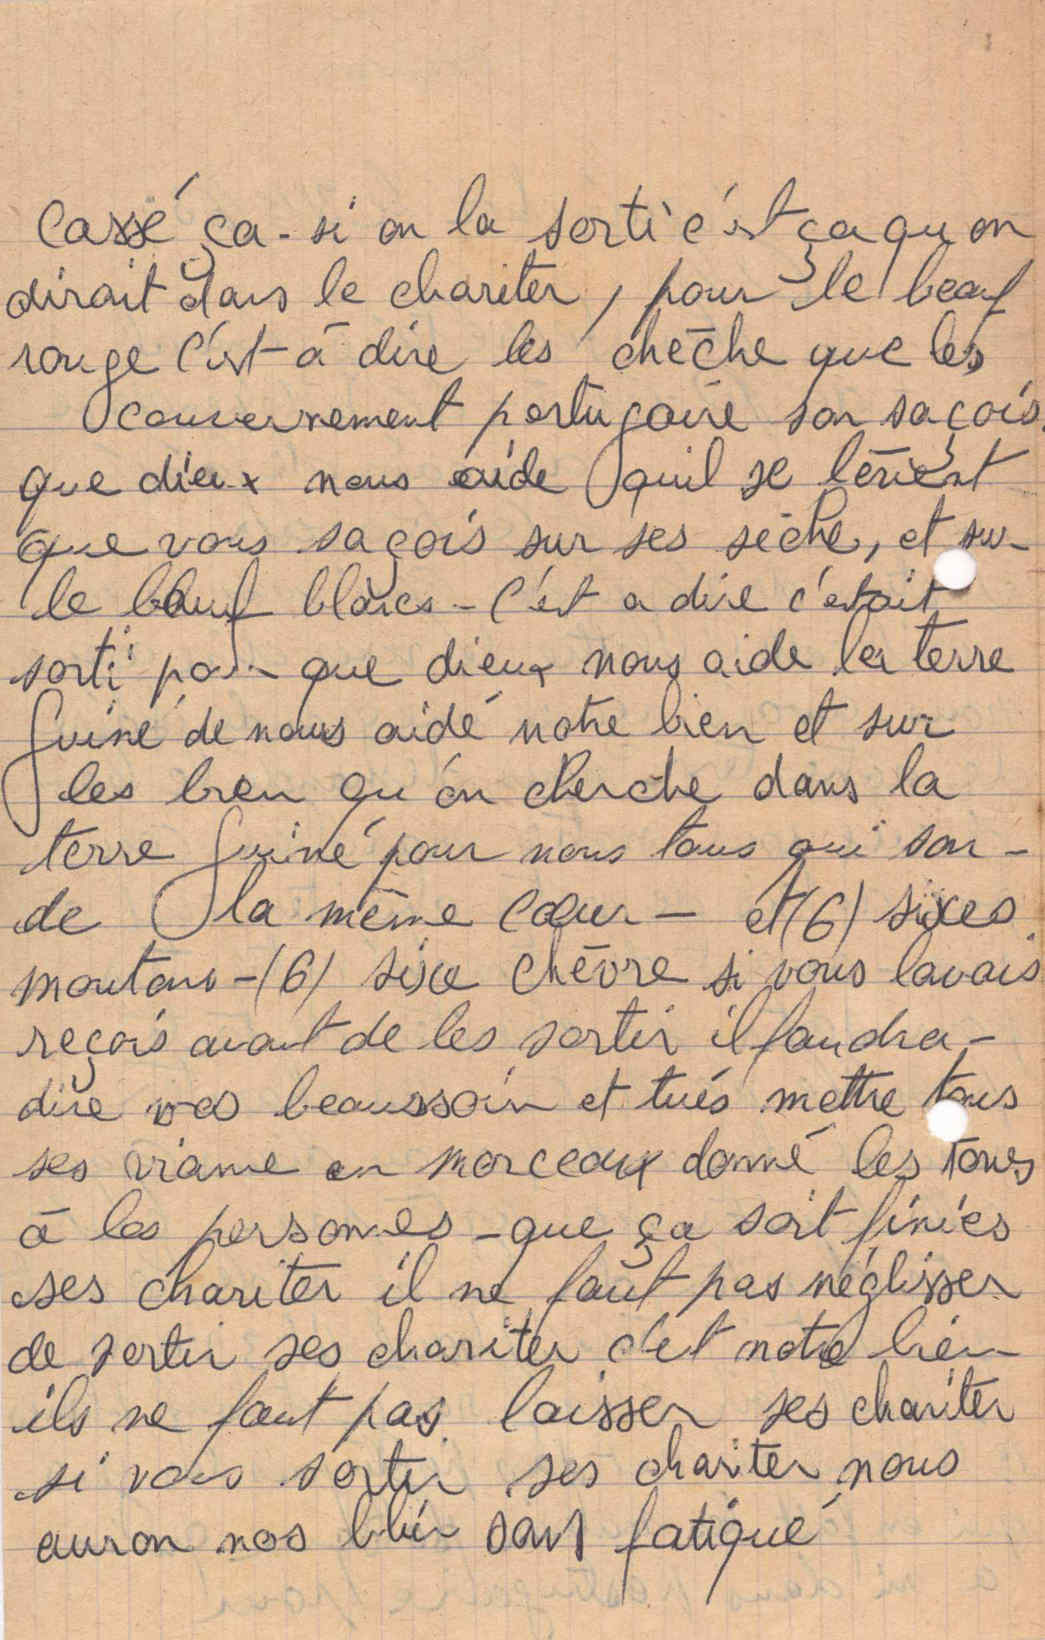 Cassé ça - si on la sorti c'est ça qu'on
dirait dans le chariter, pour le beauf
rouge c'est-à dire les chèche que les
Gouvernement portugaire son saçois.
que dieux nous aide quil se
que vous saçois sur ses sèche, et sur
le bœuf blancs - c'est a dire c'estait
sorti pour que dieux nous aide la terre
Guiné de nous aidé notre bien et sur
les bien qu'on cherche dans la
terre Guiné pour nous tous qui son -
de la même cœur - et (6) sixes
moutons - (6) sixe chèvre si vous lavais
reçois avant de les sortir il faudra -
dire vos beaussoin et tués mettre tous
ses viame en morceaux donné les tous
à les personnes - que ça soit finies
ses chariter il ne faut pas néglisser
de sortir ses chariter c'et notre bien
ils ne faut pas laisser ses chariter
si vous sortir ses chariter nous
auron nos bien sans fatigué